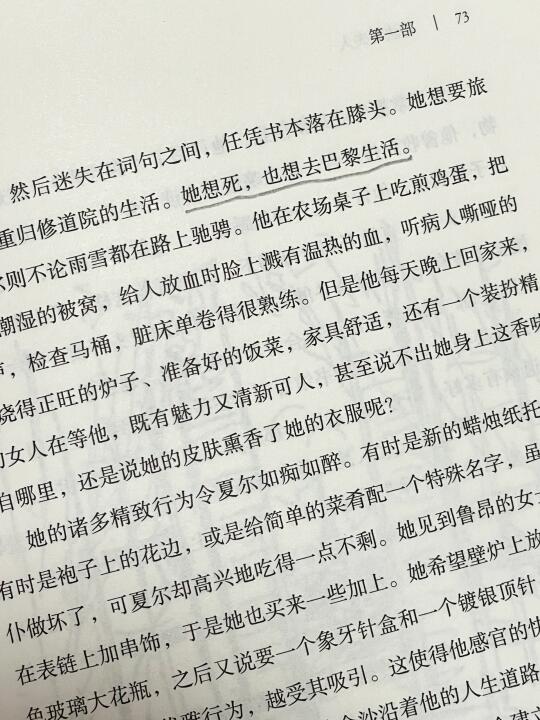 第一部 | 73
然后迷失在词句之间，任凭书本落在膝头。她想要旅
重归修道院的生活。她想死，也想去巴黎生活。
则不论雨雪都在路上驰骋。他在农场桌子上吃煎鸡蛋，把
潮湿的被窝，给人放血时脸上溅有温热的血，听病人嘶哑的
，检查马桶，脏床单卷得很熟练。但是他每天晚上回家来，
烧得正旺的炉子、准备好的饭菜，家具舒适，还有一个装扮精
女人在等他，既有魅力又清新可人，甚至说不出她身上这香味
自哪里，还是说她的皮肤熏香了她的衣服呢？
她的诸多精致行为令夏尔如痴如醉。有时是新的蜡烛纸托
有时是袍子上的花边，或是给简单的菜肴配一个特殊名字，虽
仆做坏了，可夏尔却高兴地吃得一点不剩。她见到鲁昂的女士
在表链上加串饰，于是她也买来一些加上。她希望壁炉上放
色玻璃大花瓶，之后又说要一个象牙针盒和一个镀银顶针
雅行为，越受其吸引。这使得他感官的快
沙沿着他的人生道路